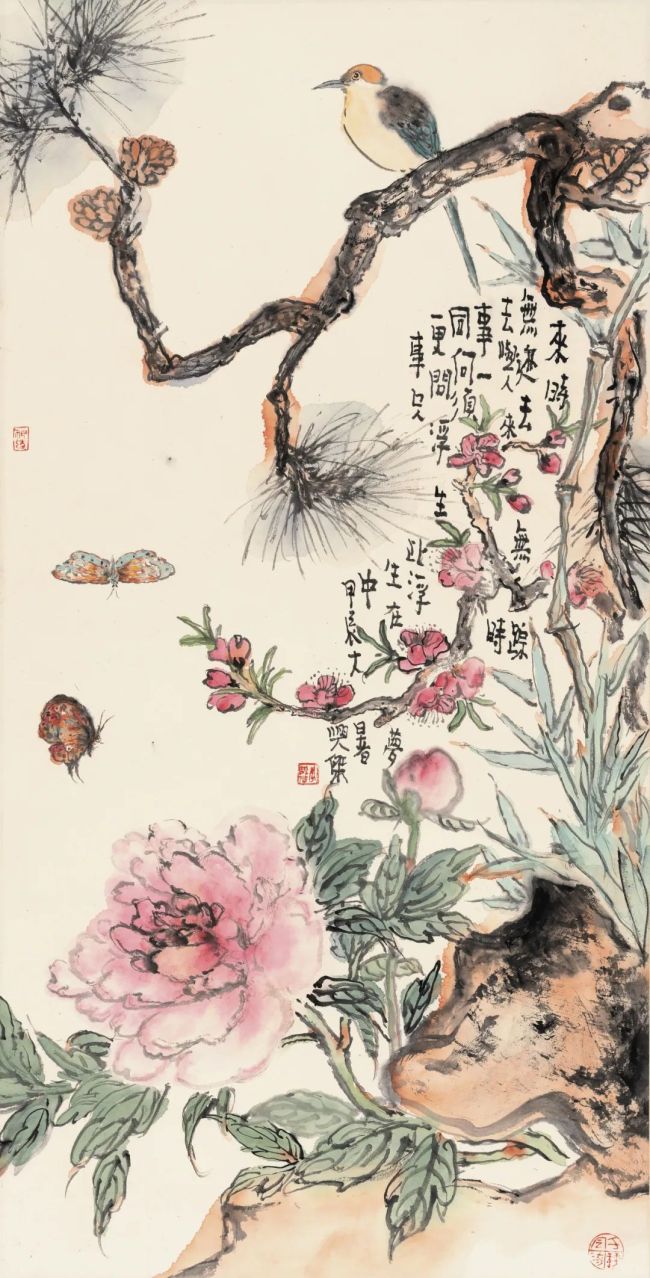 來時
無迹去無蹤
去與來時
事一
同何須
更問浮生
事只此浮
生在夢
中
甲辰大暑